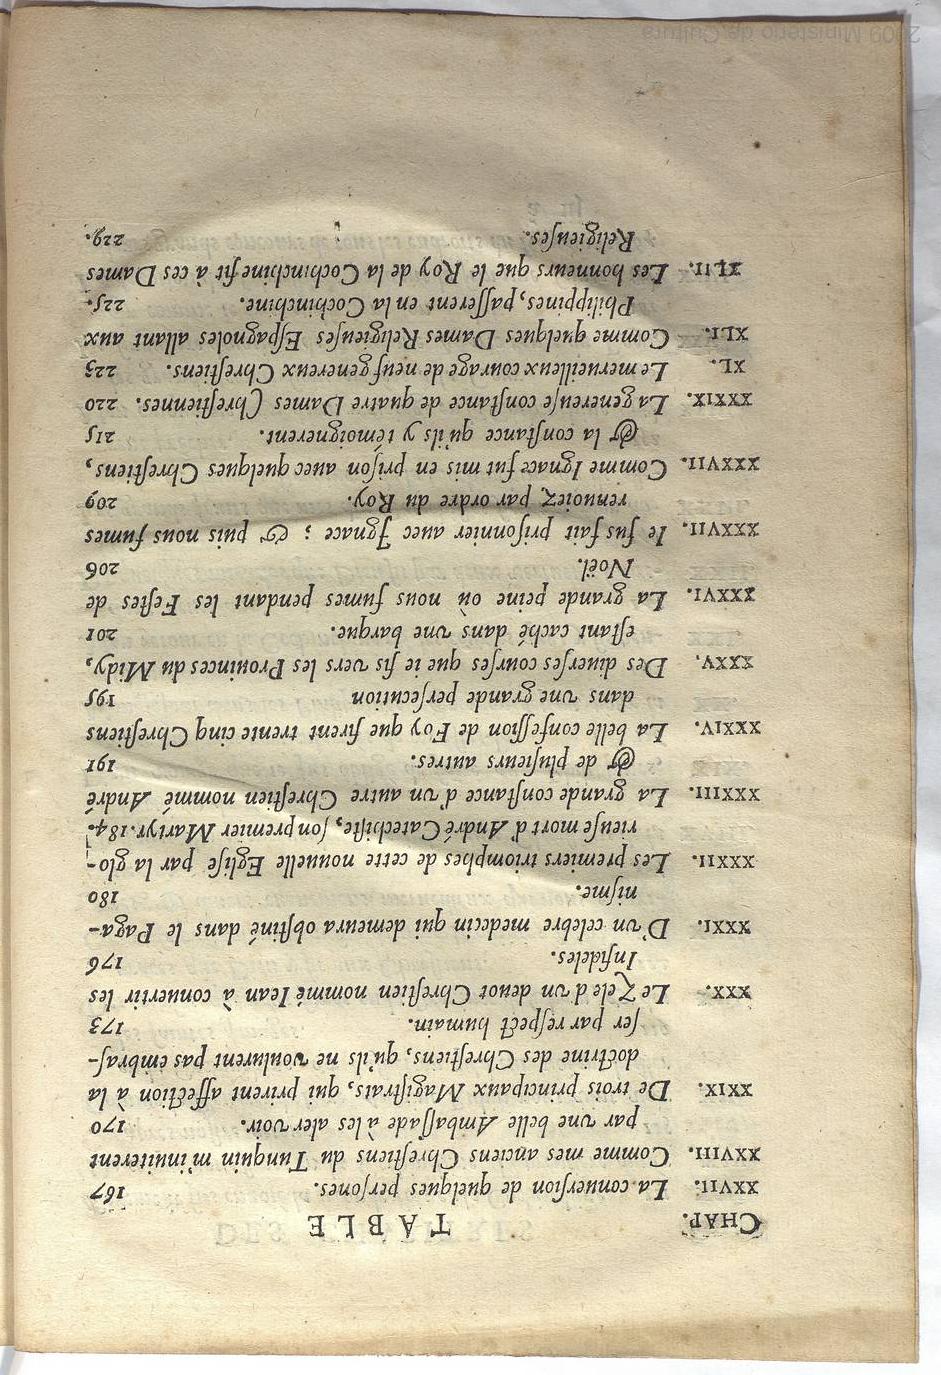 TABLE
CHAP.
XXVII. La conuersion de quelques persones. 167
XXVIII. Comme mes anciens Chrestiens du Tunquin m'inuiterent
par vne belle Ambassade à lés aler voir. 170
XXIX. De trois principaux Magistrats, qui prirent affection à la
doctrine des Chrestiens, qu'ils ne voulurent pas embras-
ser par respect humain. 173
XXX. Le Zele d'vn deuot Chrestien nommé Iean à conuertir les
Infideles. 176
XXXI. D'vn celebre medecin qui demeura obstiné dans le Paga-
nisme. 180
XXXII. Les premiers triomphes de cette nouuelle Eglise par la glo-
rieuse mort d'André Catechiste, son premier Martyr. 184.
XXXIII. La grande constance d'vn autre Chrestien nommé André
& de plusieurs autres. 191
XXXIV. La belle confession de Foy que firent trente cinq Chrestiens
dans vne grande persecution 195
XXXV. Des diuerses courses que ie fis vers les Prouinces du Midy,
estant caché dans vne barque. 201
XXXVI. La grande peine où nous fumes pendant les Festes de
Noël. 206
XXXVII. Ie fus fait prisonnier auec Ignace ; & puis nous fumes
renuoiez par ordre du Roy. 209
XXXVII. Comme Ignace fut mis en prison auec quelques Chrestiens,
& la constance qu'ils y témoignerent. 215
XXXIX. La genereuse constance de quatre Dames Chrestiennes. 220
XL. Le merueilleux courage de neuf genereux Chrestiens. 223
XLI. Comme quelques Dames Religieuses Espagnoles allant aux
Philippines, passerent en la Cochinchine. 225.
XLII. Les honneurs que le Roy de la Cochinchine fit à ces Dames
Religieuses. 229.
2009 Ministerio de Cultura